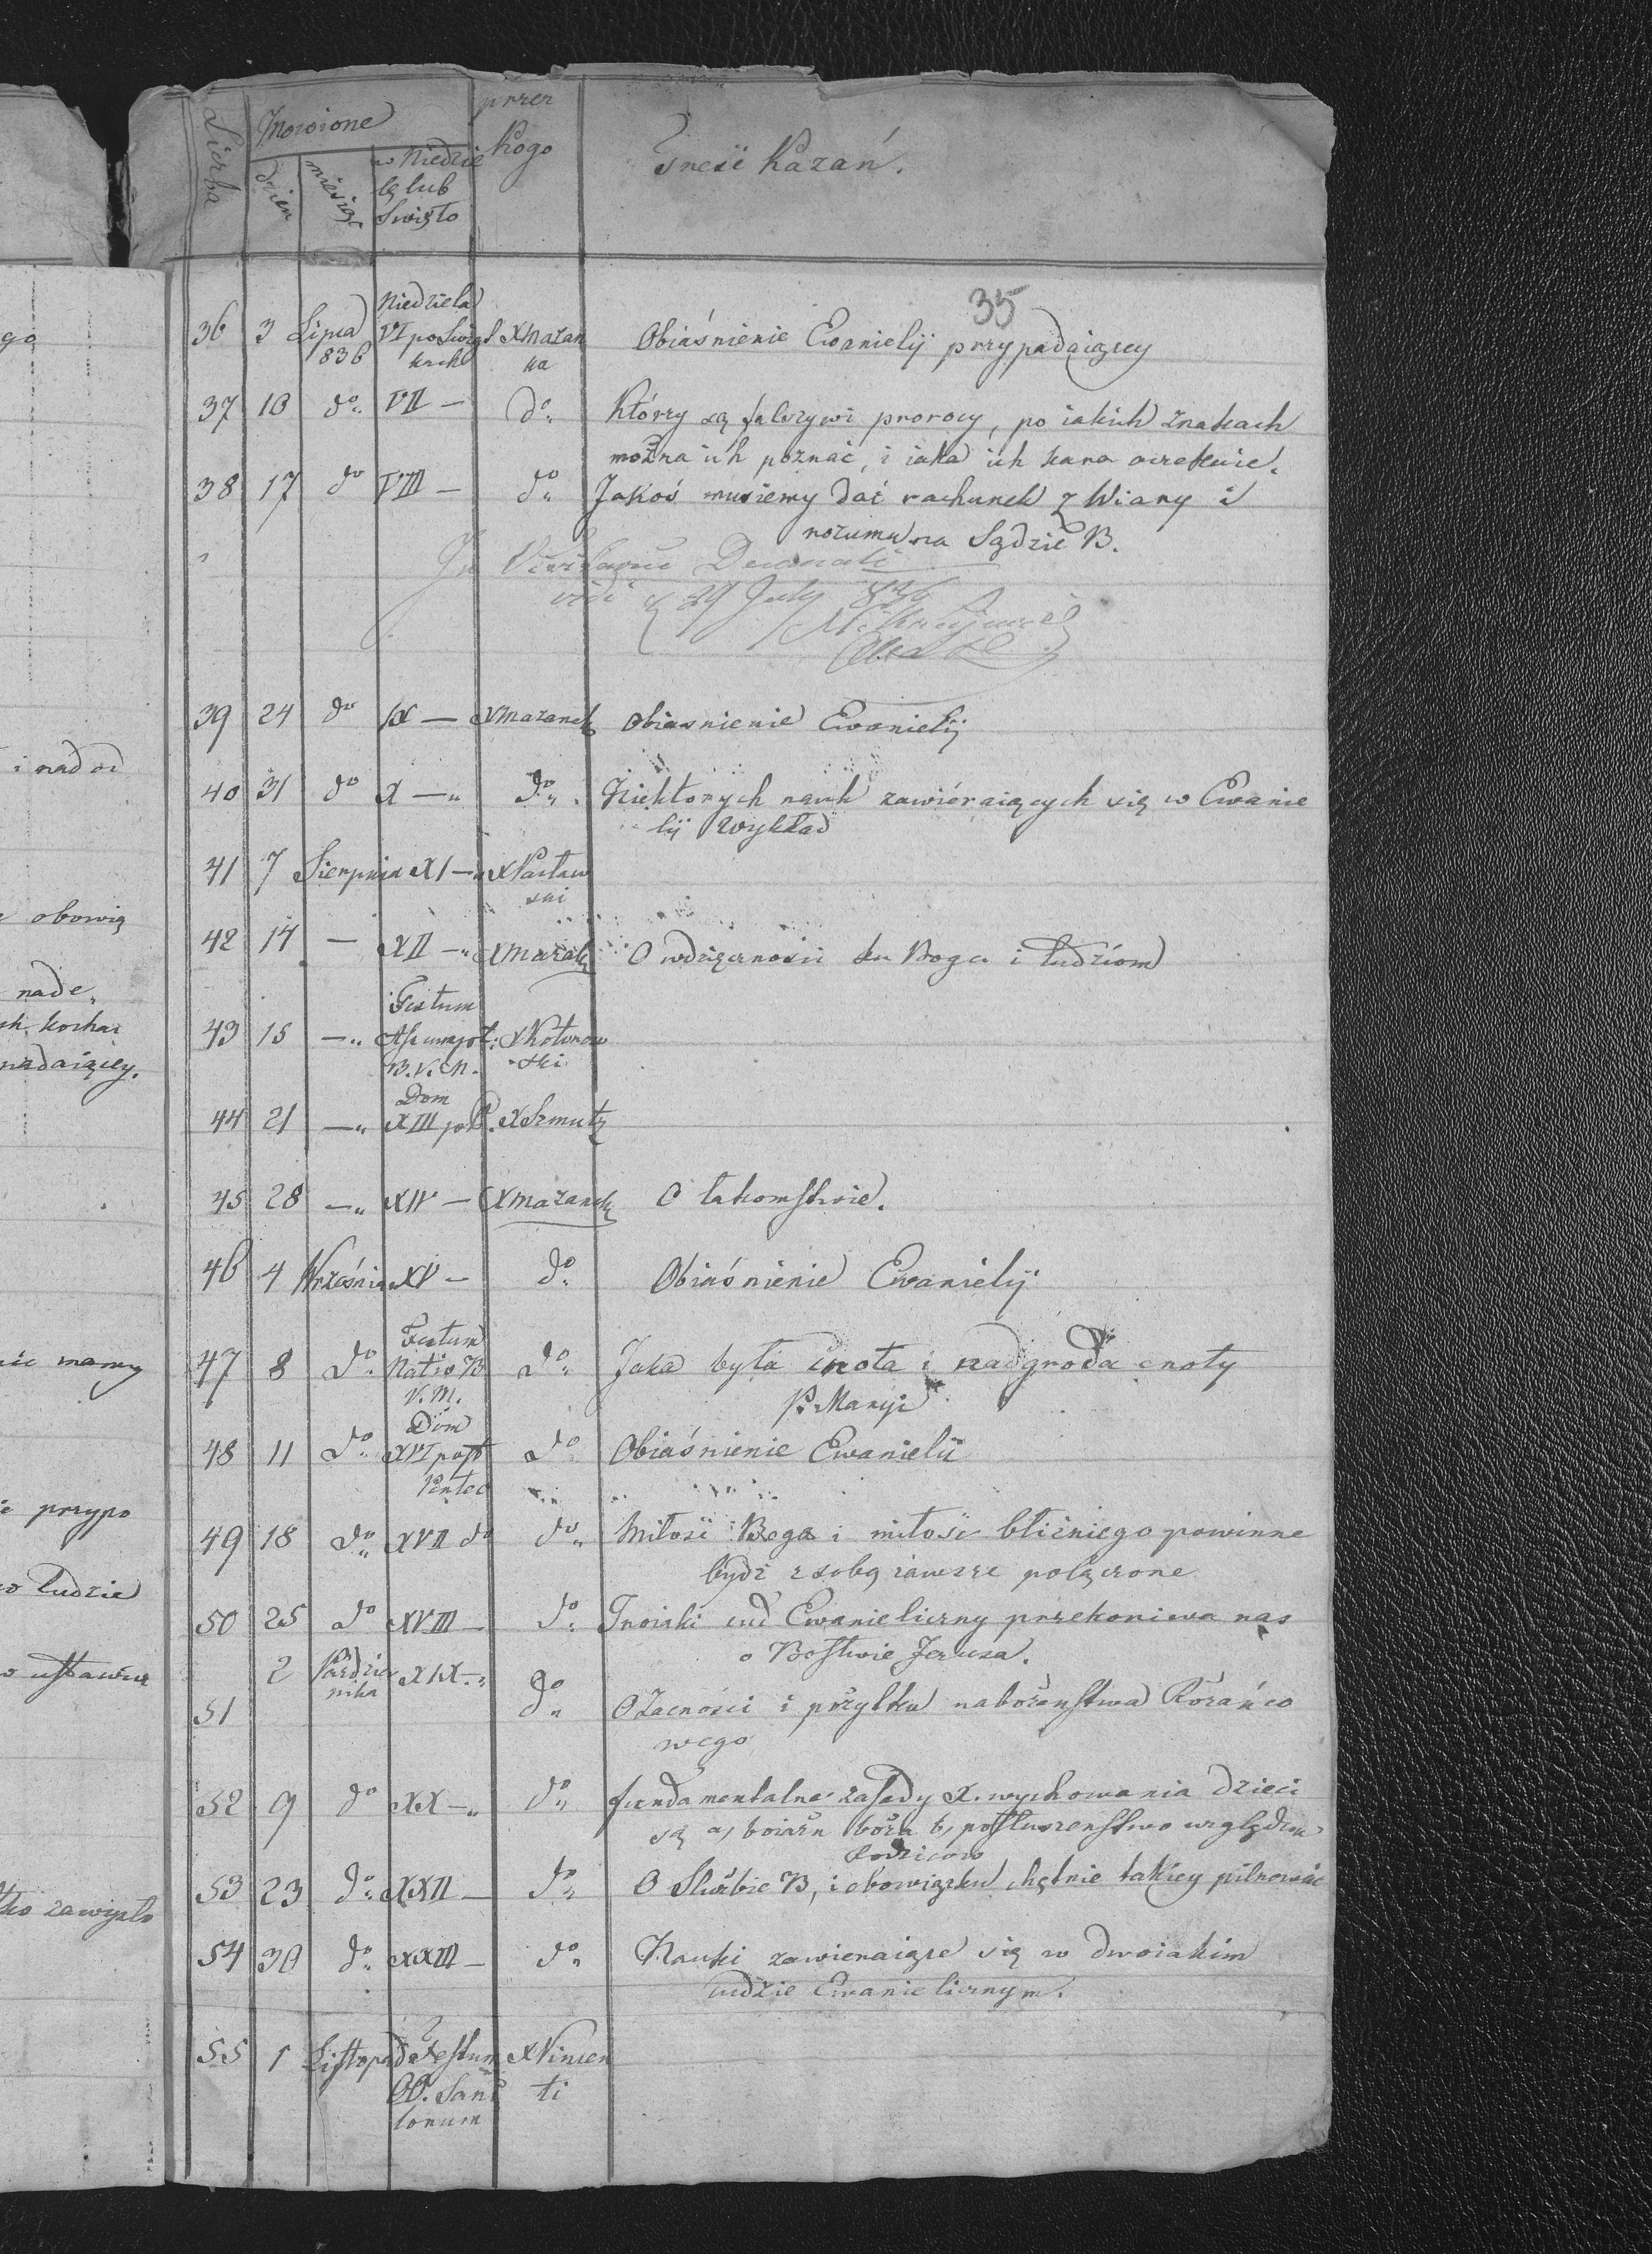 Liczba
Mowione
przez
kogo
Treść Kazań.
dzien
miesiąc
w Niedzie
lę lub
Swięto
35
36 3 Lipca Niedziela
836 VI po Swiąt XMazan
kach ka Obiaśnienie Ewanielij przypadaiącey
37 10 do VII — do Którzy są falszywi prorocy, po iakich znakach
można ich poznać, i iaka ich kara oczekuie.
38 17 do VIII — do Jakoś musiemy dać rachunek z Wiary i
rozumu na Sądzie B.
Decanali
vidi 29 July 836
39 24 do IX — XMazanek Obiasnienie Ewanielij
40 31 do X — do Niektorych nauk zawiéraiących się w Ewanie
lij wykład
41 7 Sierpnia XI —
ski
42 14 — XII — XMazak O wdzięcznosci ku Bogu i ludziom
43 15 — Festum
Assumpt: XKotwrow
B.V.M. ski
44 21 — Dom
XIII po P. XSzmutz
45 28 — XIV — XMazanek O łakomstwie.
46 4 Września XV — do Obiaśnienie Ewanielij
47 8 do Festum
Nativ B do Jaka była cnota i nadgroda cnoty
V.M. P. Maryi
48 11 do Dom
XVI post do Obiaśnienie Ewanielii
Pentec
49 18 do XVII do do Miłość Boga i miłość bliźniego powinne
bydź z sobą zawsze połączone
50 25 do XVIII — do Troiaki cud Ewanieliczny przekoniewa nas
o Bostwie Jezusa.
51 2 Paździer
nika XIX — do O zacności i pożytku nabożeństwa Różańco
wego
52 9 do XX — do fundamentalne zasady X. wychowania dzieci
są a, boiaźń boża b, posłuszenstwo względem
Rodzicow
53 23 do XXII — do O Służbie B, i obowiązku chętnie takiey pilnować
54 30 do XXIII — do Nauki zawieraiące się w dwoiakim
cudzie Ewanielicznym.
55 1 Listopada Festum XVincen
OO. Sanc ti
torum
go
i nad od
obowią
nade
kochać
nadaiącey.
mamy
przypo
ludzie
ustawne
zawisło